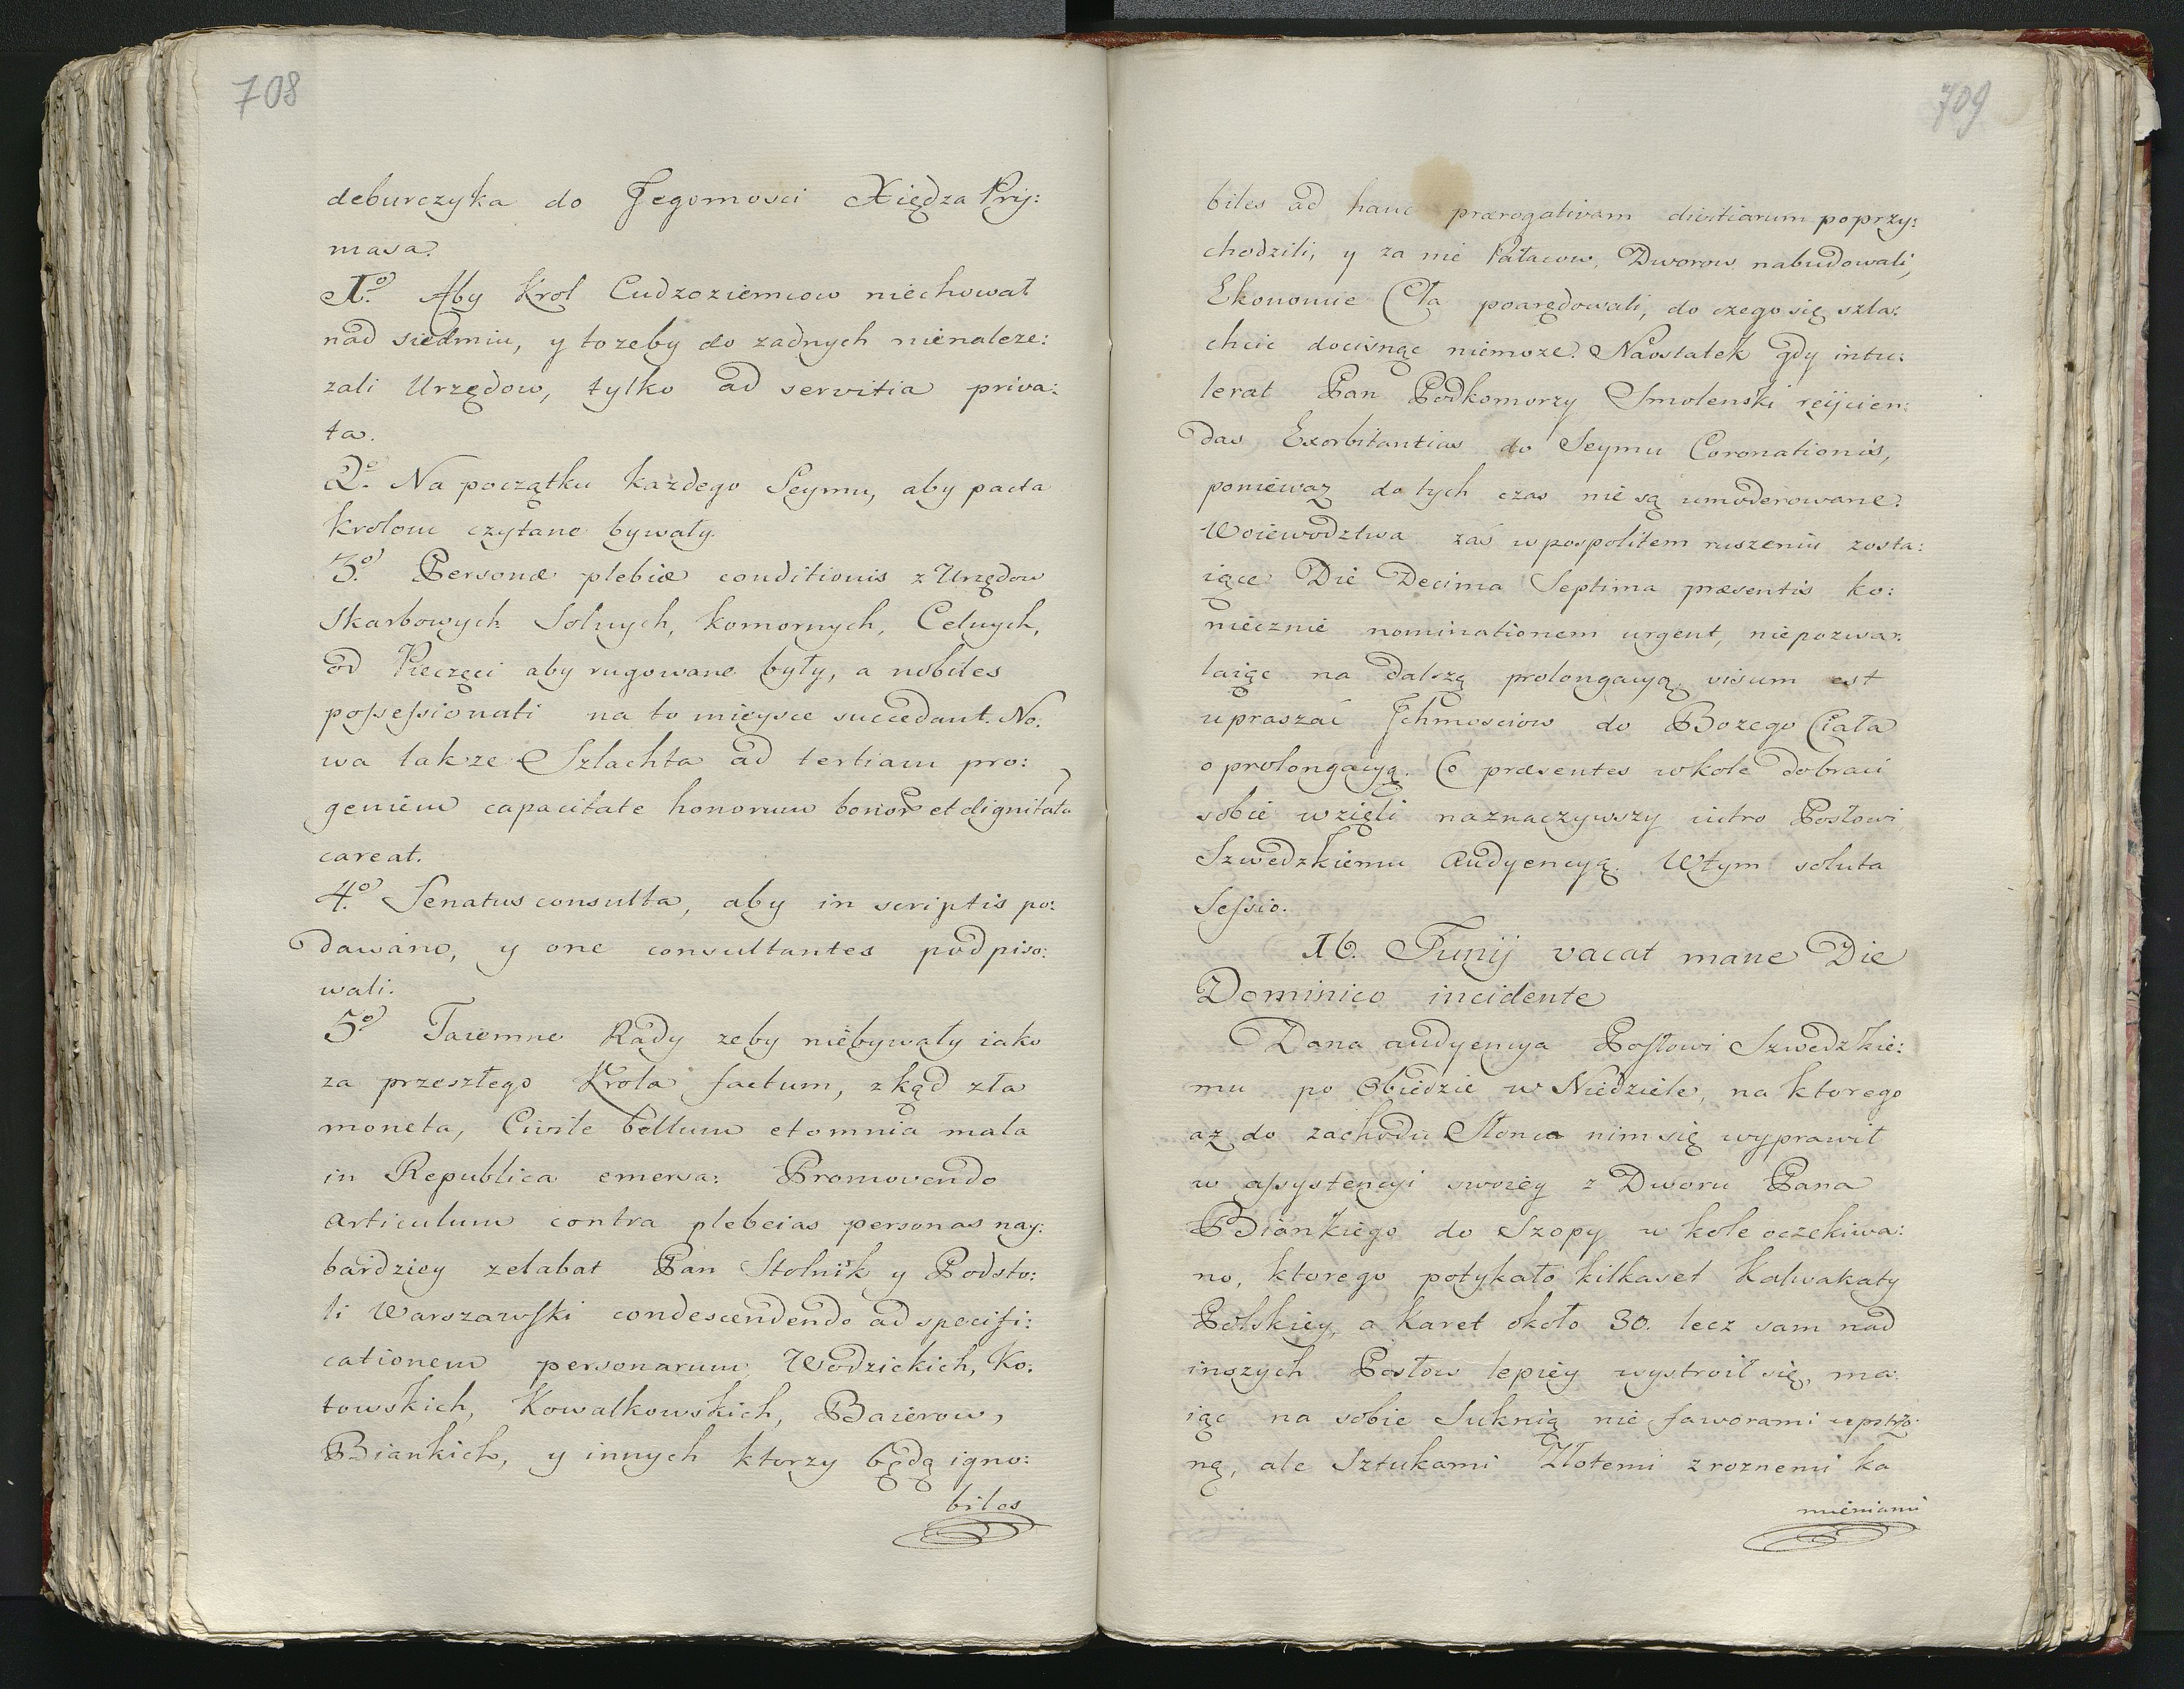 708
deburczyka do Jegomosci Xiędza Pry:
masa.
1º. Aby Krol Cudzoziemcow niechował
nad siedmiu, y to zeby do zadnych nienaleze:
zali Urzędow, tylko ad servitia priva:
ta.
2º. Na początku każdego Seymu, aby pacta
Krolom czytane bywały.
3º. Personæ plebiæ conditionis z Urzędow
Skarbowych Solnych, komornych, Celnych,
od Pieczęci aby rugowane były, a nobiles
possessionati na to mieysce succedant. No:
wa także Szlachta ad tertiam pro:
geniem capacitate honorum bonor et dignitatu
careat.
4º. Senatus consulta, aby in scriptis po:
dawano, y one consultantes podpiso:
wali.
5º Taiemne Rady zeby niebywały iako
za przeszłego Krola factum, zkąd zła
moneta, Civile bellum et omnia mala
in Republica emersa: Promovendo
articulum contra plebeias personas nay:
bardziey zelabat Pan Stolnik y Podsto:
li Warszawski condescendendo ad specifi:
cationem personarum Wodzickich, Ko:
towskich, Kowalkowskich, Baierow,
Biankich, y innych ktorzy będą igno:
biles
709
biles ad hanc prærogativam divitiarum poprzy:
chodzili, y za nie Pałacow, Dworow nabudowali,
Ekonomie Cła poarędowali, do czego się szla:
chcic docisnąc niemoze. Naostatek gdy intu:
lerat Pan Podkomorzy Smolenski reijcien:
das Exorbitantias do Seymu Coronationis,
ponieważ do tych czas nie są umoderowane.
Woiewodztwa zaś w pospolitem ruszeniu zosta:
iące Die Decima Septima præsentis ko:
niecznie nominationem urgent, niepozwa:
laiąc na dalszą prolongacyą, visum est
upraszać Jchmosciow do Bozego Ciała
o prolongacyą. Co præsentes w kole do braci
sobie wzięli naznaczywszy iutro Posłowi
Szwedzkiemu audyencyą. Wtym soluta
Sessio.
16. Junij vacat mane Die
Dominico incidente
Dana audyencya Posłowi Szwedzkie:
mu po obiedzie w Niedziele, na ktorego
aż do zachodu Słonca nim się wyprawił
w assystencyi swoiey z Dworu Pana
Biankiego do Szopy w kole oczekiwa:
no, ktorego potykało kilkaset Kalwakaty
Polskiey, a Karet około 30. lecz sam nad
inszych Posłow lepiey wystroił się, ma:
iąc na sobie Suknią nie faworami upstrzo:
ną, ale Sztukami Złotemi z roznemi ka
mieniami